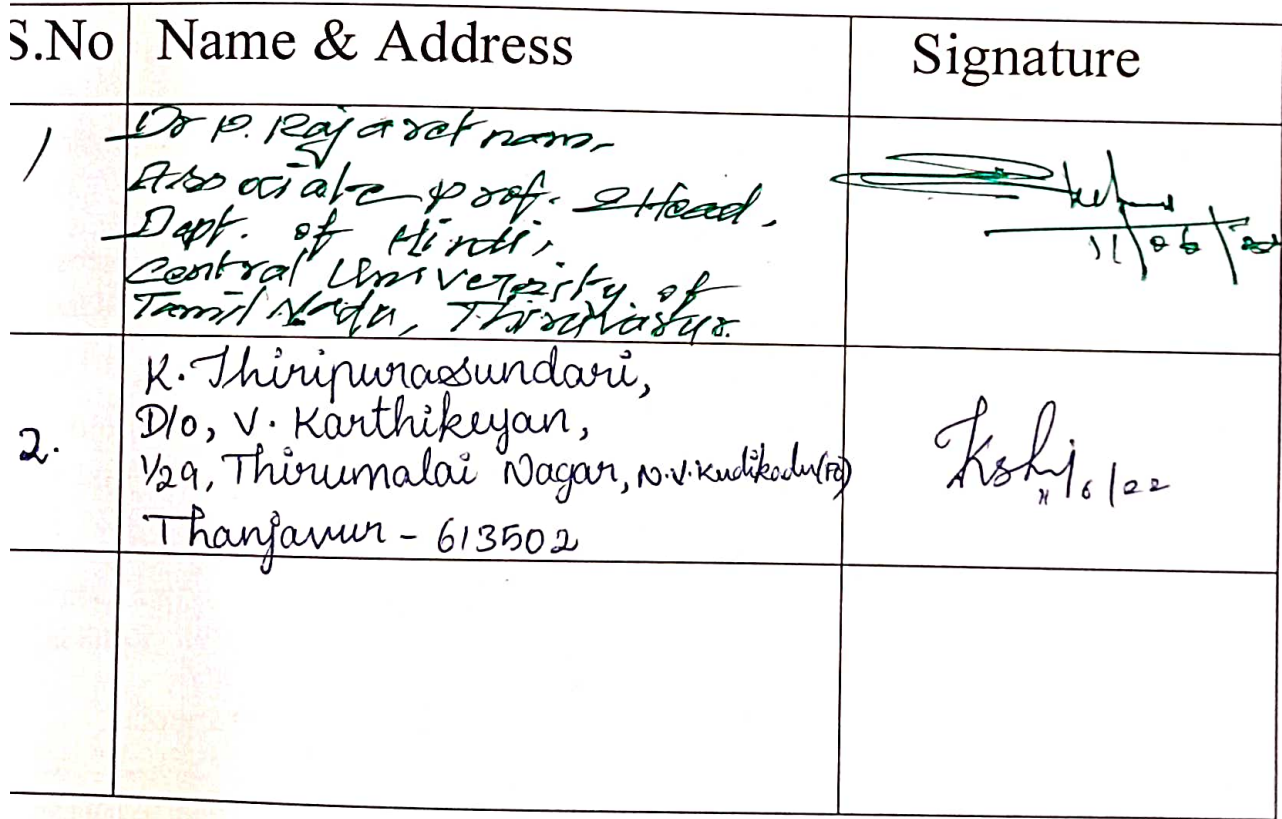 S.No Name & Address Signature
1 Dr P. Rajaretnam,
Associate Prof. & Head,
Dept. of Hindi,
Central University of
Tamil Nadu, Thiruvarur.
11/06/
K. Thiripurasundari,
D/o, V. Karthikeyan,
2. 1/29, Thirumalai Nagar, N.V. Kudikadu(Po)
Thanjavur - 613502
11/6/22